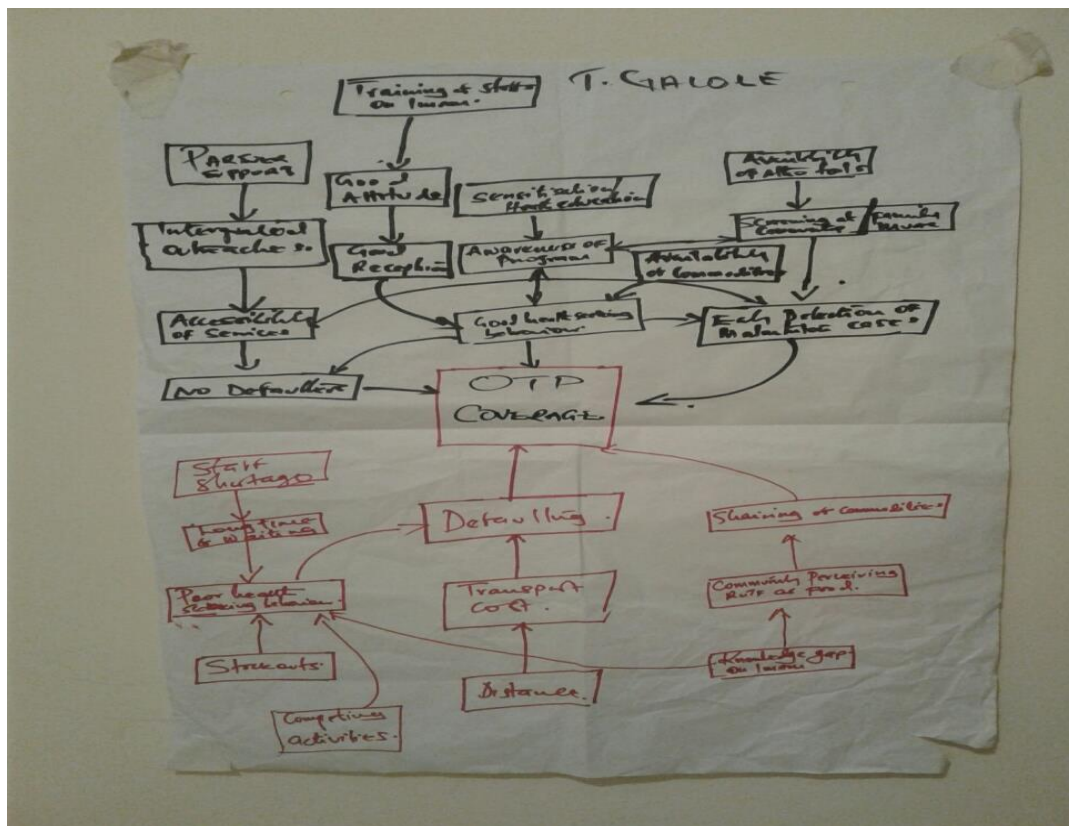 T. GALOLE
Training of Staff
on Imam.
PARTNER
SUPPORT
Good
Attitude
Sensitisation/
Health education
Availability
of
Screening at
Community / Family
MUAC
Integrated
outreaches.
Good
Reception
Awareness of
Program
Availability
of commodities
Accessibility
of Services
Good health seeking
behaviour.
Early Detection of
cases
NO Defaulters
OTP
COVERAGE
Staff
Shortage
Long time
Waiting
Defaulting.
Sharing of commodities.
Poor
seeking behaviour.
Transport
cost.
Community Perceiving
RUTF as food.
Stockouts.
Distance.
Knowledge gap
on Imam
Competing
activities.